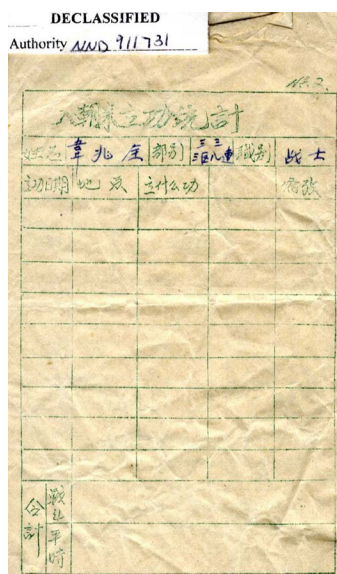 DECLASSIFIED
Authority NND 911731
No. 2.
入朝来立功统計
姓名 韋兆 部别 连 職别 战士
立功日期 地点 立什么功
合計 戰 平時